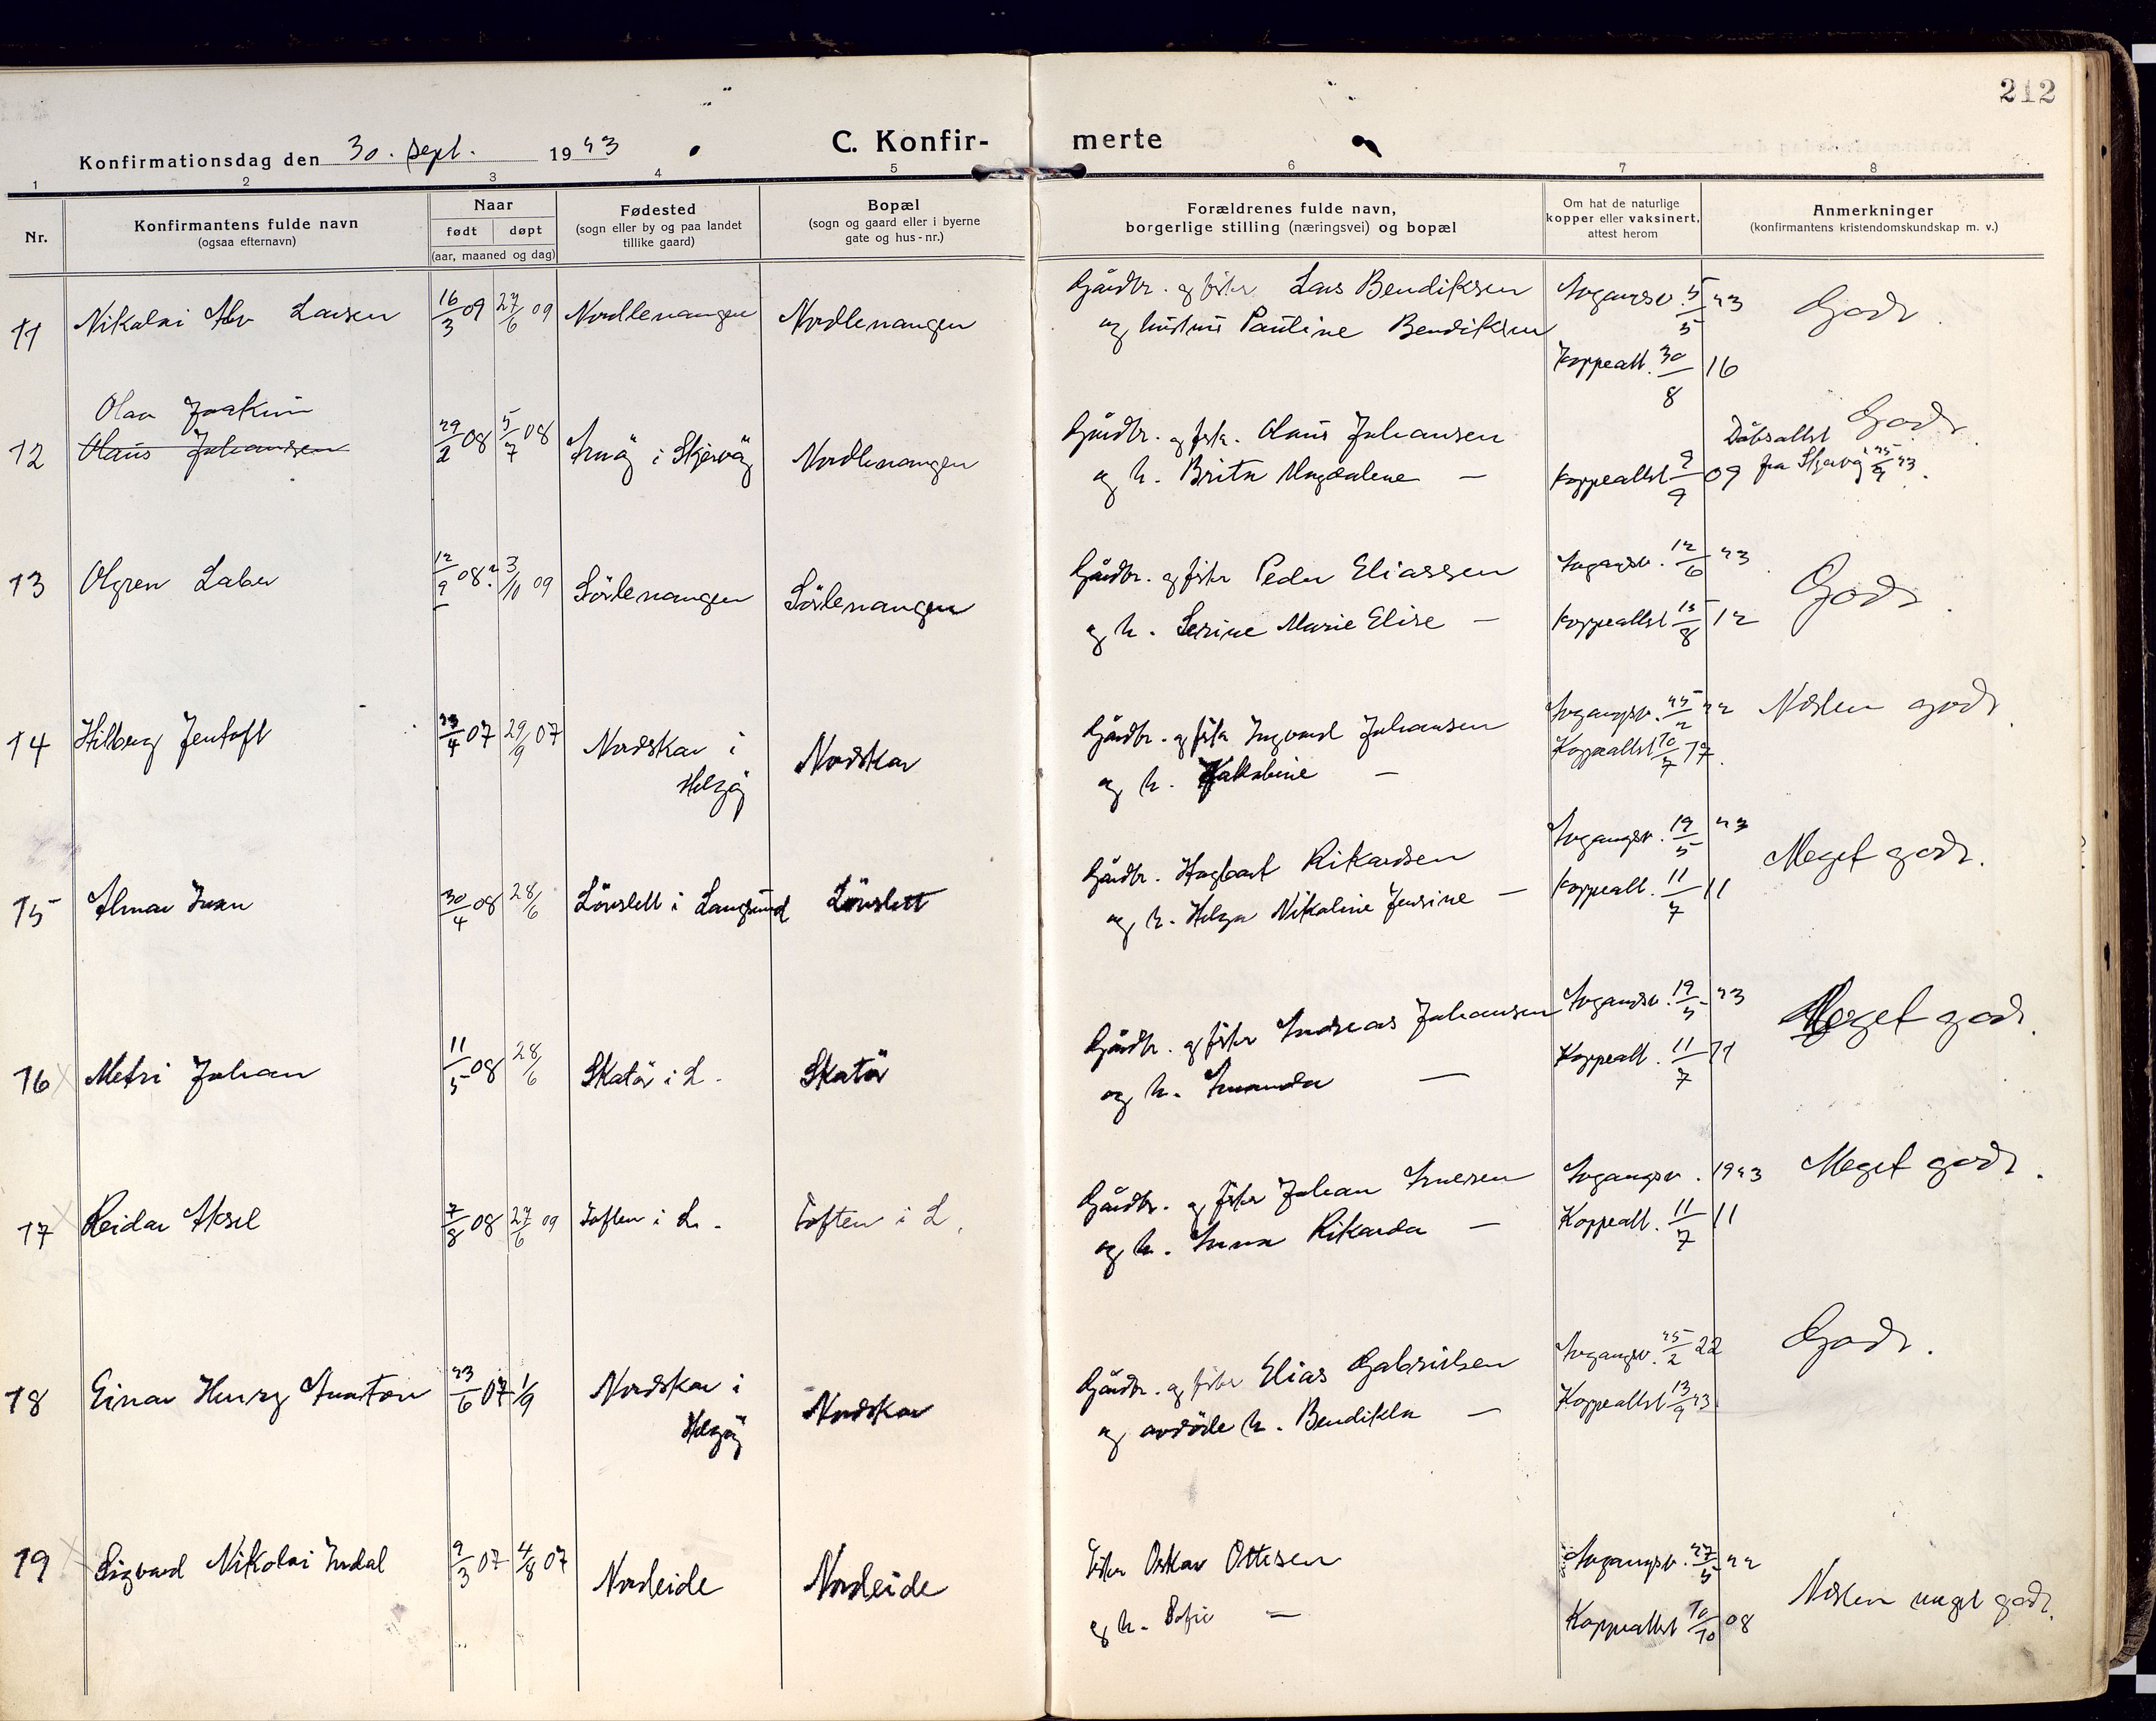 212
C. Konfirmerte
Konfirmationsdag den 30. sept. 1923
1 2 3 4 5 6 7 8
Nr.
Konfirmantens fulde navn
(ogsaa efternavn)
Naar
født døpt
(aar, maaned og dag)
Fødested
(sogn eller by og paa landet
tillike gaard)
Bopæl
(sogn og gaard eller i byerne
gate og hus-nr.)
Forældrenes fulde navn,
borgerlige stilling (næringsvei) og bopæl
Om hat de naturlige
kopper eller vaksinert,
attest herom
Anmerkninger
(konfirmantens kristendomskundskap m. v.)
11 Nikolai Larsen 16/3 09 27/6 09 Nordlenangen Nordlenangen
Gårdbr. og fisker Lars Bendiksen
og hustru Pauline Bendiksen
Avgangsv. 5/5 23
Koppeatt. 30/8 16
Godt
12 Olav Joakim
Olaus Johansen
29/2 08 5/7 08 Arnøy i Skjervøy Nordlenangen
Gårdbr. og fisk. Olaus Johansen
og h. Brita Magdalene —
Koppeattst 9/9 09
Godt
Dåbsattst
fra Skjervøy 25/9 23.
13 Olgren Laber 12/9 08? 3/10 09 Sörlenangen Sörlenangen
Gårdbr. og fisker Peder Eliassen
og h. Serine Marie Elise —
Avgangsv. 12/6 23
Koppeattst 15/8 12
Godt.
14 Hilberg Jentoft 23/4 07 29/9 07 Nordskar i
Helgøy
Nordskar
Gårdbr. og fisk Ingvard Johansen
og h. Jakobine —
Avgangsv. 25/2 22
Koppeattst 10/7 17.
Næsten godt
15 Almar Ivan 30/4 08 28/6 Lönslett i Langsund Lönslett
Gårdbr. Hagbart Rikardsen
og h. Helga Nikoline Jensine —
Avgangsv. 19/5 23
Koppeatt. 11/7 11
Meget godt.
16 Metri Johan 11/5 08 28/6 Skatör i L. Skatör
Gårdbr. og fisker Andreas Johansen
og h. Amanda —
Avgangsv. 19/5 23
Koppeatt. 11/7 11
Meget godt.
17 Reidar Aksel 7/8 08 27/6 09 Toften i L. Toften i L.
Gårdbr. og fisker Johan Arnesen
og h. Anna Rikarda —
Avgangsv. 1923
Koppeatt. 11/7 11
Meget godt.
18 Einar Henry Anton 23/6 07 1/9 Nordskar i
Helgøy
Nordskar
Gårdbr. og fisker Elias Gabrielsen
og avdöde h. Bendikta —
Avgangsv. 25/2 22
Koppeattst 13/9 23
Godt.
19 Sigvard Nikolai Indal 9/3 07 4/8 07 Nordeide Nordeide
Fisker Oskar Ottesen
og h. Sofie —
Avgangsv. 27/5 22
Koppeattst 10/10 08
Næsten meget godt.